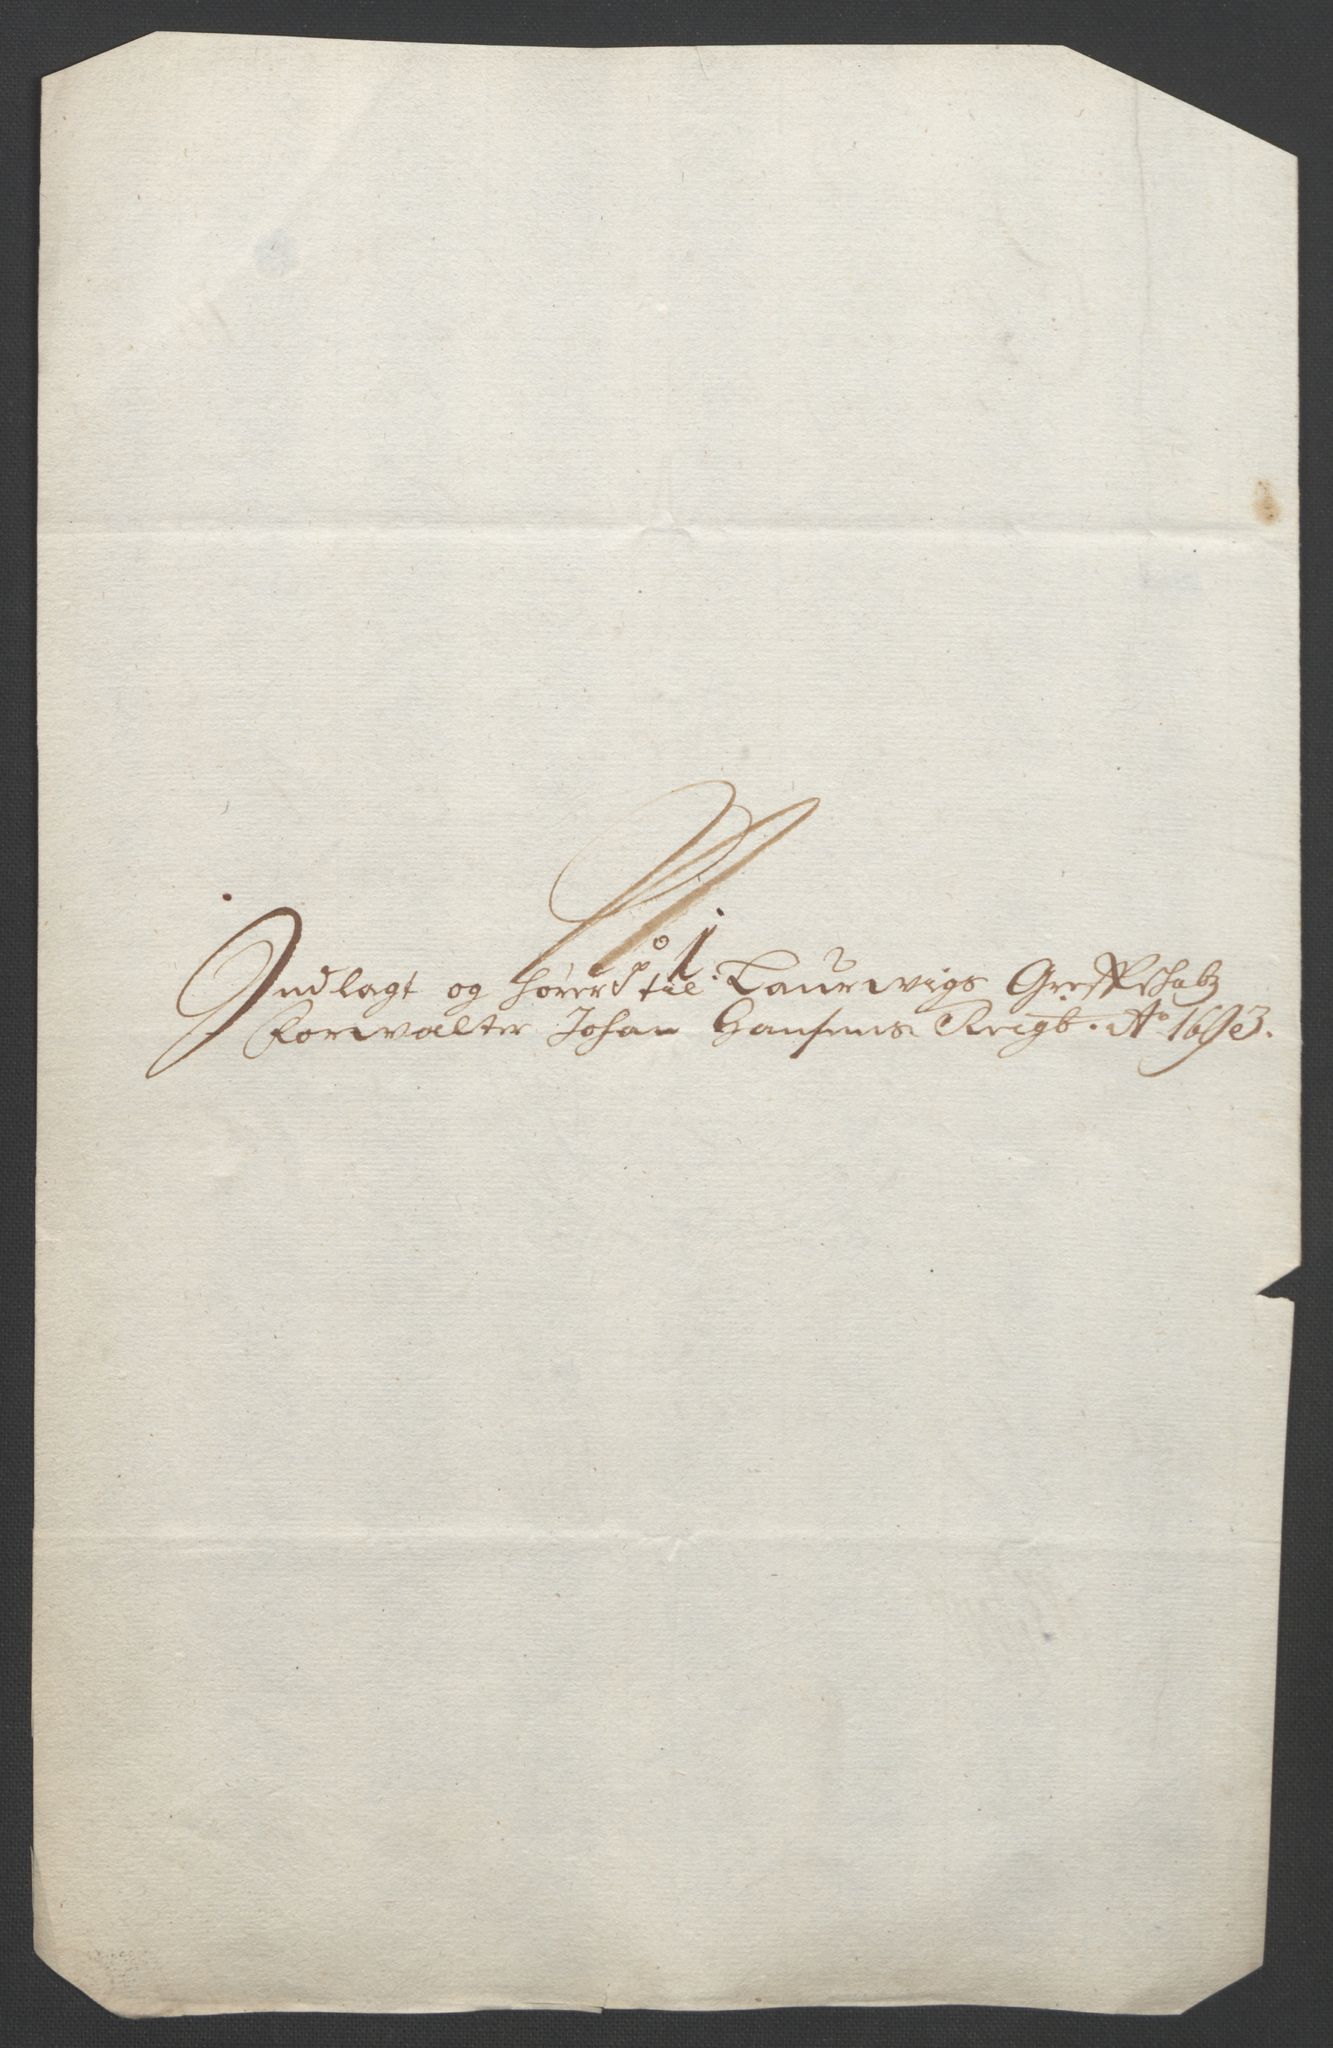 No 1.
Indlagt og hører til Laurwigs Greffschabz
Forwalter Johan Hansens Reigb. Ao 1693.